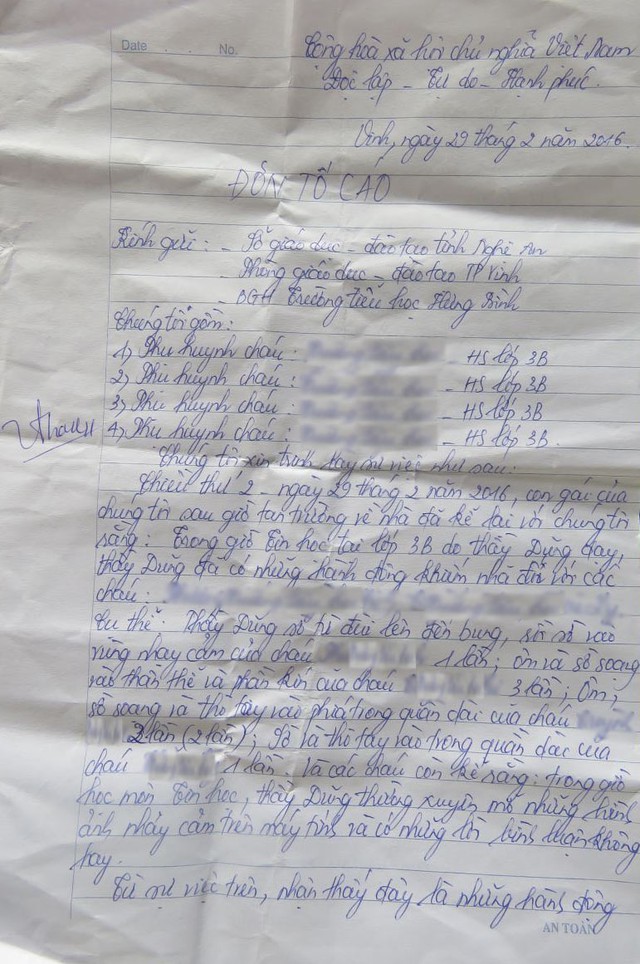 Date . . No.
Cộng hoà xã hội chủ nghĩa Việt Nam
Độc lập - Tự do - Hạnh phúc.
Vinh, ngày 29 tháng 2 năm 2016.
ĐƠN TỐ CÁO
Kính gửi: - Sở giáo dục - đào tạo tỉnh Nghệ An
- Phòng giáo dục - đào tạo TP Vinh
- BGH Trường tiểu học Hưng Bình
Chúng tôi gồm:
1) Phụ huynh cháu: - HS lớp 3B
2) Phụ huynh cháu: - HS lớp 3B
3) Phụ huynh cháu: - HS lớp 3B
4) Phụ huynh cháu: - HS lớp 3B.
Chúng tôi xin trình bày sự việc như sau:
Chiều thứ 2 - ngày 29 tháng 2 năm 2016, con gái của
chúng tôi sau giờ tan trường về nhà đã kể lại với chúng tôi
rằng: Trong giờ Tin học tại lớp 3B do thầy Dũng dạy,
thầy Dũng đã có những hành động khiếm nhã đối với các
cháu:
Cụ thể: Thầy Dũng sờ từ đùi lên đến bụng, sờ vào
vùng nhạy cảm của cháu 1 lần; ôm và sờ soạng
vào thân thể và phần kín của cháu 3 lần; Ôm,
sờ soạng và thò tay vào phía trong quần dài của cháu
2 lần (2 lần); Sờ và thò tay vào trong quần dài của
cháu 1 lần. Và các cháu còn kể rằng: trong giờ
học môn Tin học, thầy Dũng thường xuyên mở những hình
ảnh nhạy cảm trên máy tính và có những lời bình luận không
hay.
Từ sự việc trên, nhận thấy đây là những hành động
AN TOÀN